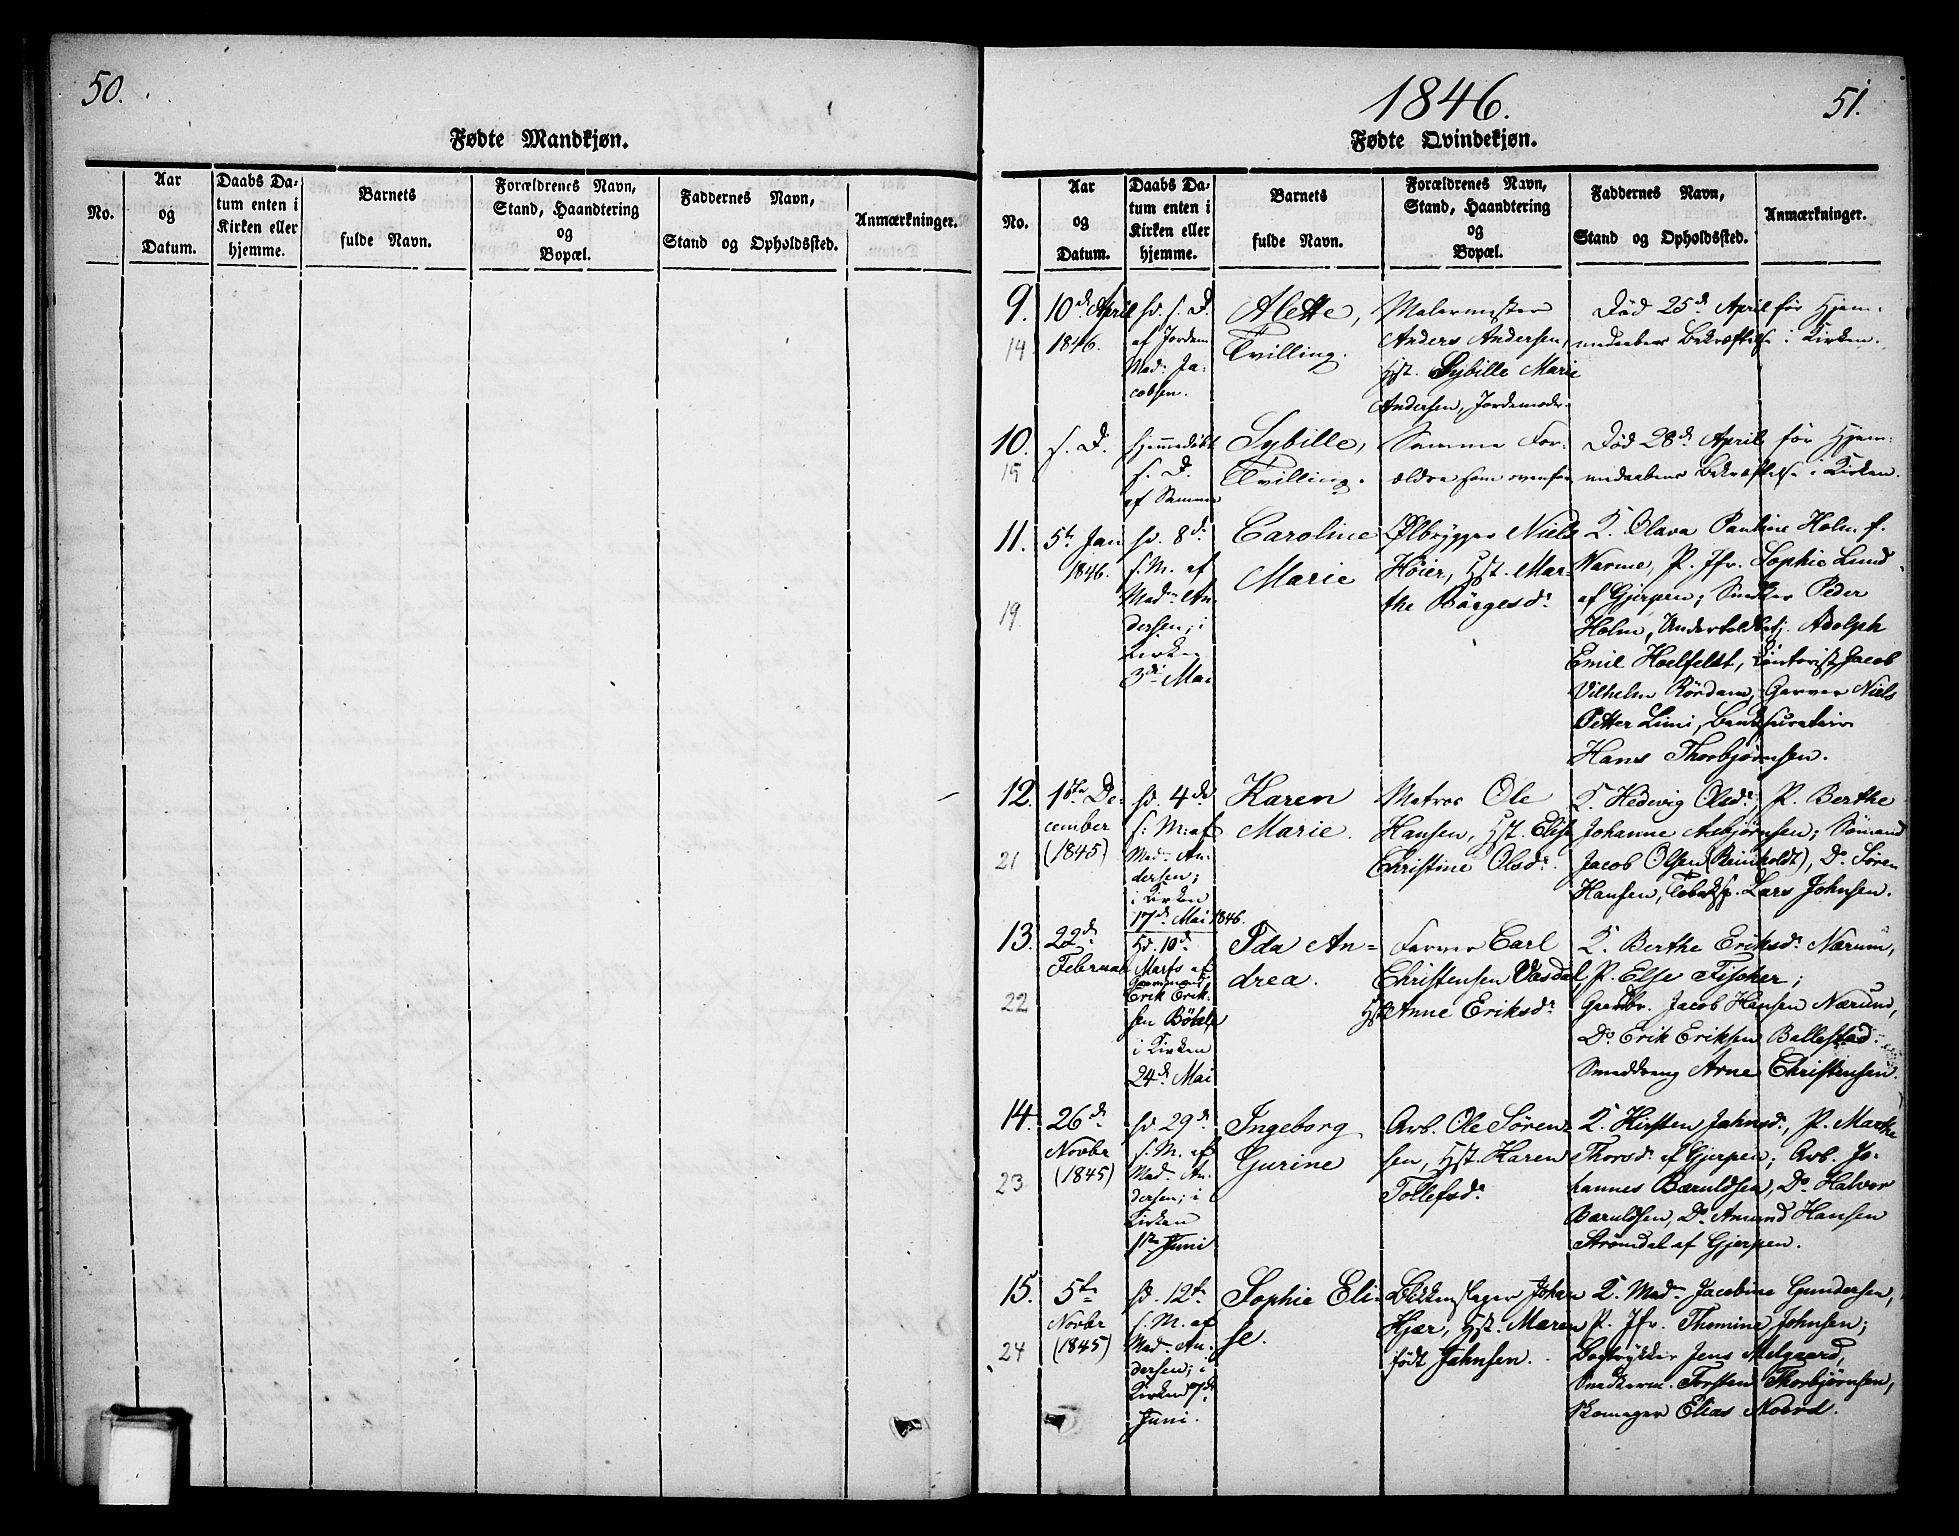 50.
Fødte Mandkjøn.
No.
Aar
og
Datum.
Daabs Da-
tum enten i
Kirken eller
hjemme.
Barnets
fulde Navn.
Forældrenes Navn,
Stand, Haandtering
og
Bopæl.
Faddernes Navn,
Stand og Opholdssted.
Anmærkninger.
1846.
51.
Fødte Qvindekjøn.
No.
Aar
og
Datum.
Daabs Da-
tum enten i
Kirken eller
hjemme.
Barnets
fulde Navn.
Forældrenes Navn,
Stand, Haandtering
og
Bopæl.
Faddernes Navn,
Stand og Opholdssted.
Anmærkninger.
9.
14
10de April
1846.
hd. s. D.
af Jordem
Mad. Ja-
cobsen.
Alette,
Tvilling.
Malermester
Anders Andersen,
Hst. Sybille Marie
Andersen, Jordemoder.
Død 25de April før Hjem-
medaabens Bekræftelse i Kirken.
10.
15
s. D.
hjemmedøbt
s. D.
af Samme
Sybille,
Tvilling.
Samme For-
ældre som ovenfor
Død 28de April før Hjem-
medaabens Bekræftelse i Kirken.
11.
19.
5te Jan
1846.
hd. 8de
s. M. af
Mad. An-
dersen; i
Kirken
3die Mai
Caroline
Marie
Ølbrygger Niels
Høier, Hst. Mar-
the Börgesdr
K. Olava Pauline Holm f.
Warme, P. Jfr. Sophie Lund
af Gjerpen; Snedker Peder
Holm, Adolph
Emil Hoelfeldt, Contorist Jacob
Vilhelm Rördam, Garver Niels
Petter Limi,
Hans Thorbjørnsen.
12.
21
18de De-
cember
(1845)
hd. 4de
s: M: af
Mad. An-
dersen;
i Kirken
17de Mai 1846.
Karen
Marie.
Matros Ole
Hansen, Hst. Elise
Christine Olsdr.
K. Hedevig Olsdr, P. Berthe
Johanne Asbjørnsen; Sømand
Jacob Olsen (Reinholdt), Do Søren
Hansen, Lars Johnsen.
13.
22
22de
Februar
hd. 10de
Marts af
Erik Erik-
sen Böhle
i Kirken
24de Mai
Ida An-
drea.
Farver Carl
Christensen Vasdal,
Hst. Anne Eriksdr
K. Berthe Eriksdr Nærum,
P. Else Fischer;
Grdbr. Jacob Hansen Nærum,
Do Erik Eriksen Ballestad
Smeddreng Arne Christensen.
14.
23
26de
Novbr
(1845)
hd 29de
s. M. af
Mad. An-
dersen; i
Kirken
1ste Juni
Ingeborg
Gurine
Arb. Ole Søren-
sen, Hst. Karen
Tollefsdr
K. Kirsten Jahnsdr, P. Marthe
Thorsdr af Gjerpen; Arb. Jo-
hannes Bæruldsen, Do Halvor
Bæruldsen, Do Amund Hansen
Strömdal af Gjerpen.
15.
24
5te
Novbr
(1845)
hd. 12te
s. M. af
Mad. An-
dersen; i
Kirken 7de
Juni.
Sophie Eli-
se.
Blikkenslager Johan
Hjær, Hst. Maren
født Jahnsen.
K. Mad. Jacobine Gundersen,
P. Jfr. Thomine Johnsen;
Bogtrykker Jens Melgaard,
Snedkerm. Torsten Thorbjørnsen,
Skomager Elias Noard.